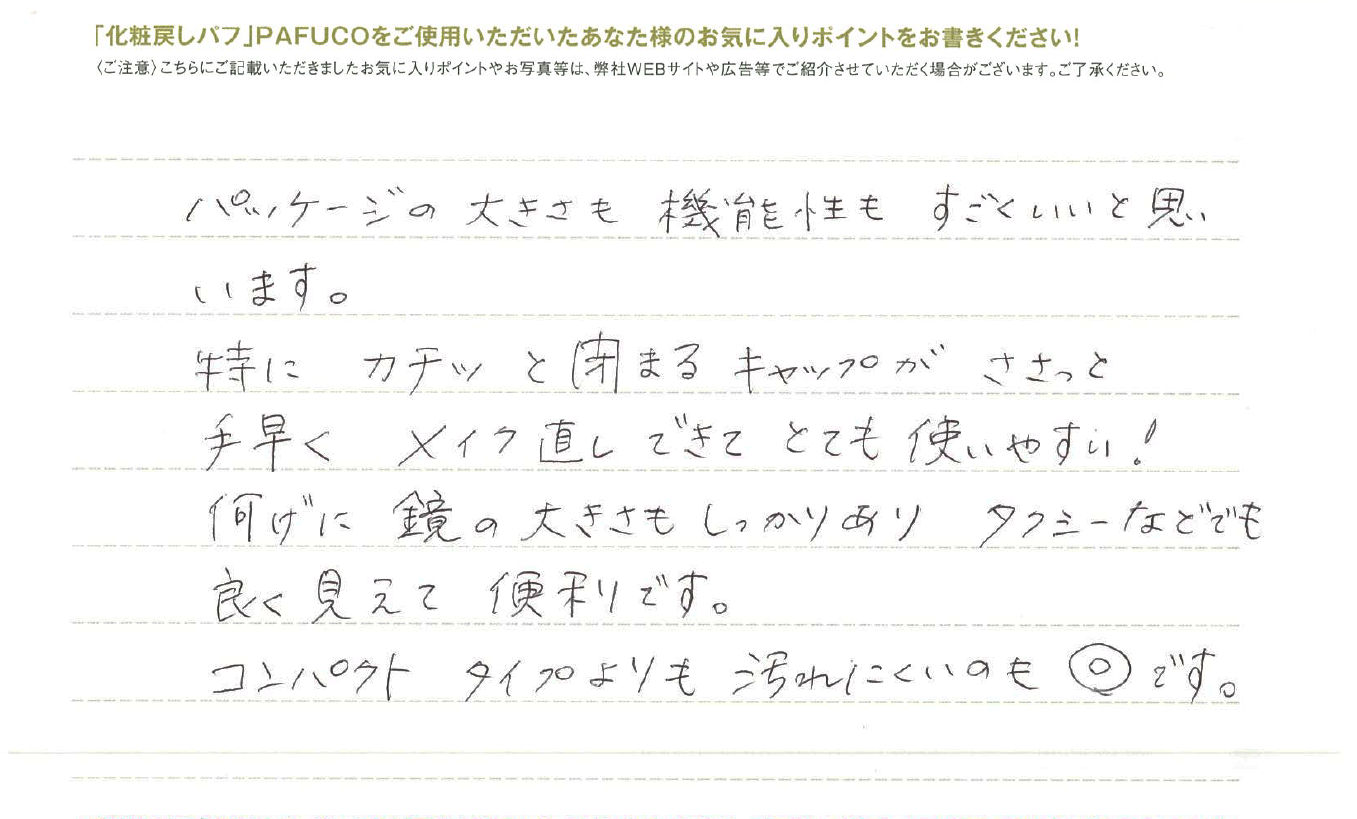 「化粧戻しパフ」PAFUCOをご使用いただいたあなた様のお気に入りポイントをお書きください!
〈ご注意〉こちらにご記載いただきましたお気に入りポイントやお写真等は、弊社WEBサイトや広告等でご紹介させていただく場合がございます。ご了承ください。
パッケージの大きさも機能性もすごくいいと思い
います。
特にカチッと閉まるキャップがささっと
手早くメイク直しできてとても使いやすい!
何げに鏡の大きさもしっかりありタクシーなどでも
良く見えて便利です。
コンパクトタイプよりも汚れにくいのも◎です。